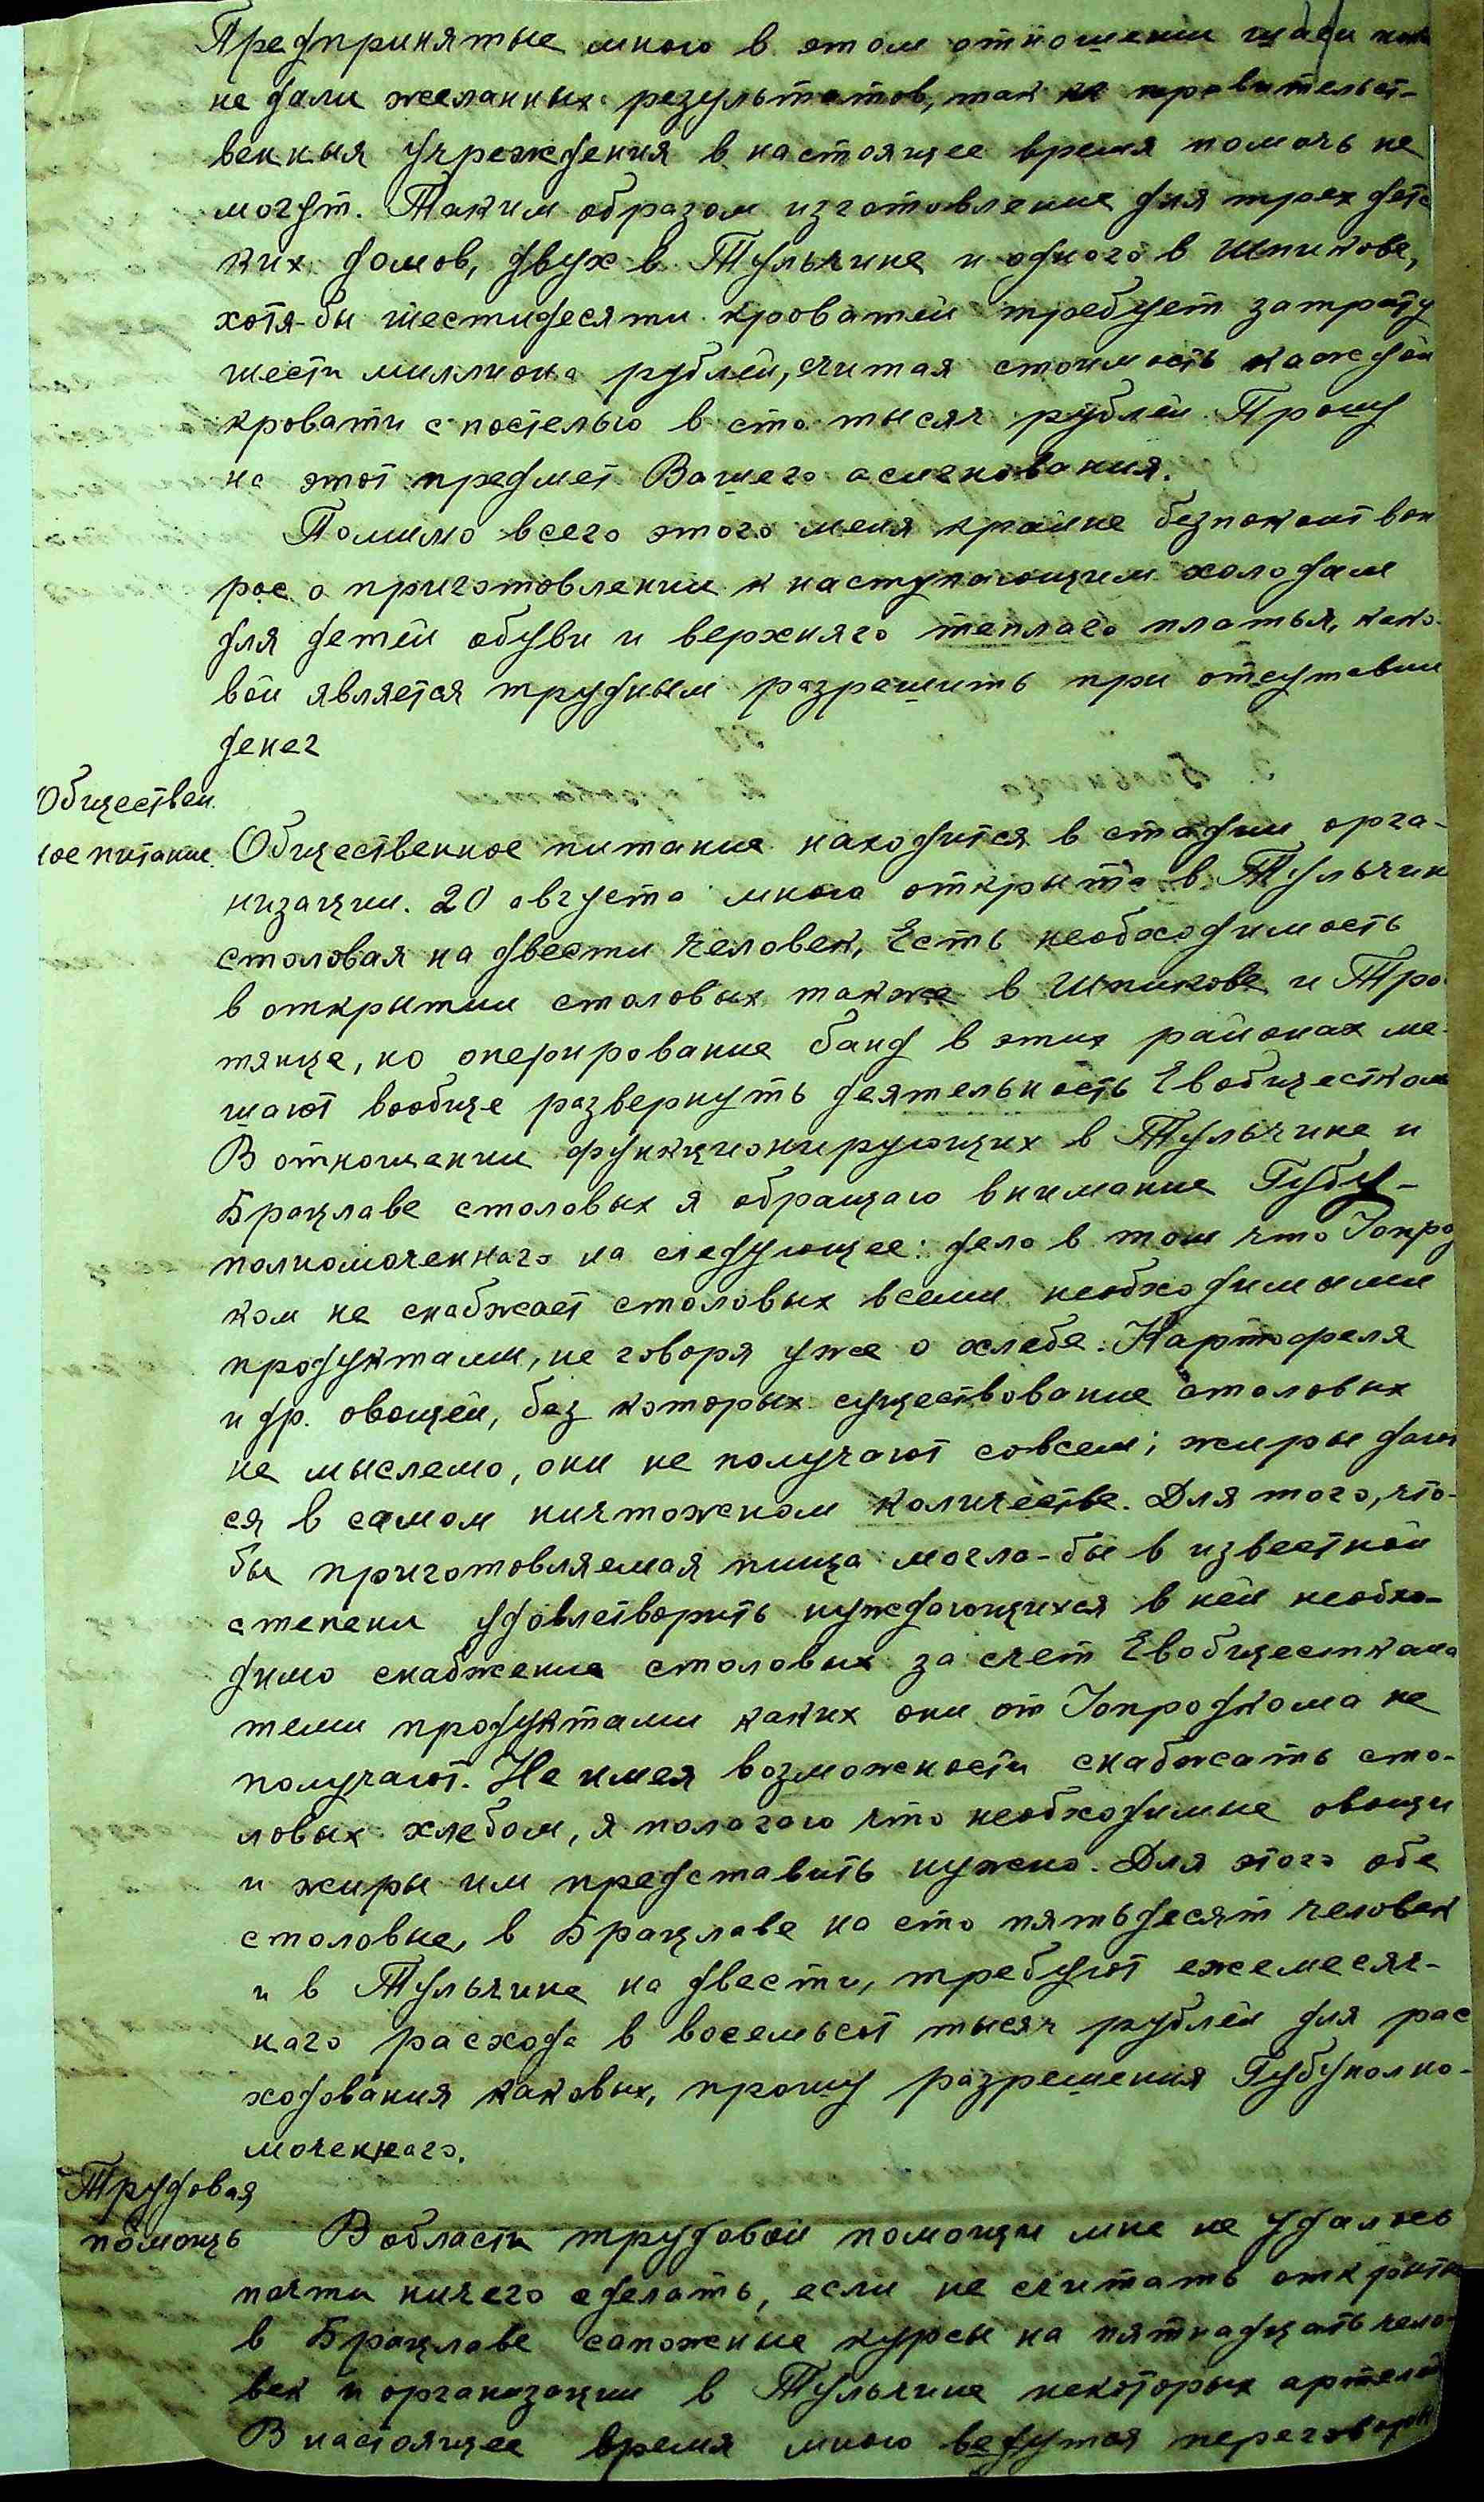 Предпринятые мною в этом отношении шаги пока
не дали желанных результатов, так как правительст-
венныя учреждения в настоящее время помочь не
могут. Таким образом изготовление для трех детс
ких домов, двух в Тульчине и одного в Шпикове,
хотя-бы шестидесяти кроватей требует затрату
шести миллиона рублей, считая стоимость каждой
кровати с постелью в сто тысяч рублей. Прошу
на этот предмет Вашего асигнования.
Помимо всего этого меня крайне безпокоит воп
рос о приготовлении к наступающим холодам
для детей обуви и верхняго теплаго платья, како-
вой является трудным разрешить при отсутсвии
денег
Обществен
ное питание
Общественное питание находится в стадии орга-
низации. 20 августа мною открыта в Тульчин
столовая на двести человек. Есть необходимость
в открытии столовых также в Шпикове и Тро
тянце, но оперирование банд в этих районах ме-
шают вообще развернуть деятельность Евобщестком
В отношении функционирующих в Тульчине и
Брацлаве столовых я обращаю внимание Губу-
полномоченнаго на следующее: дело в том что Υопрод
ком не снабжает столовых всеми необходимыми
продуктами, не говоря уже о хлебе: Картофеля
и др. овощей, без которых существование столовых
не мыслемо, они не получают совсем; жиры дают
ся в самом ничтожном количестве. Для того, что-
бы приготовляемая пища могла-бы в известной
степени удовлетворить нуждающихся в ней необхо-
димо снабжение столовых за счет Евобщесткома
теми продуктами каких они от Υопродкома не
получают. Не имея возможности снабжать сто-
ловых хлебом, я полагаю что необходимые овощи
и жиры им представить нужно. Для этого обе
столовые, в Брацлаве на сто пятьдесят человек
и в Тульчине на двести, требуют ежемесяч-
наго расхода в восемьсот тысяч рублей для рас
ходования каковых, прошу разрешения Губуполно-
моченнаго.
Трудовая
помощь
В области трудовой помощи мне не удалось
почти ничего сделать, если не считать открыты
в Брацлаве сапожные курсы на пятнадцать чело-
век и организации в Тульчине некоторых артелей
В настоящее время мною ведутся переговоры